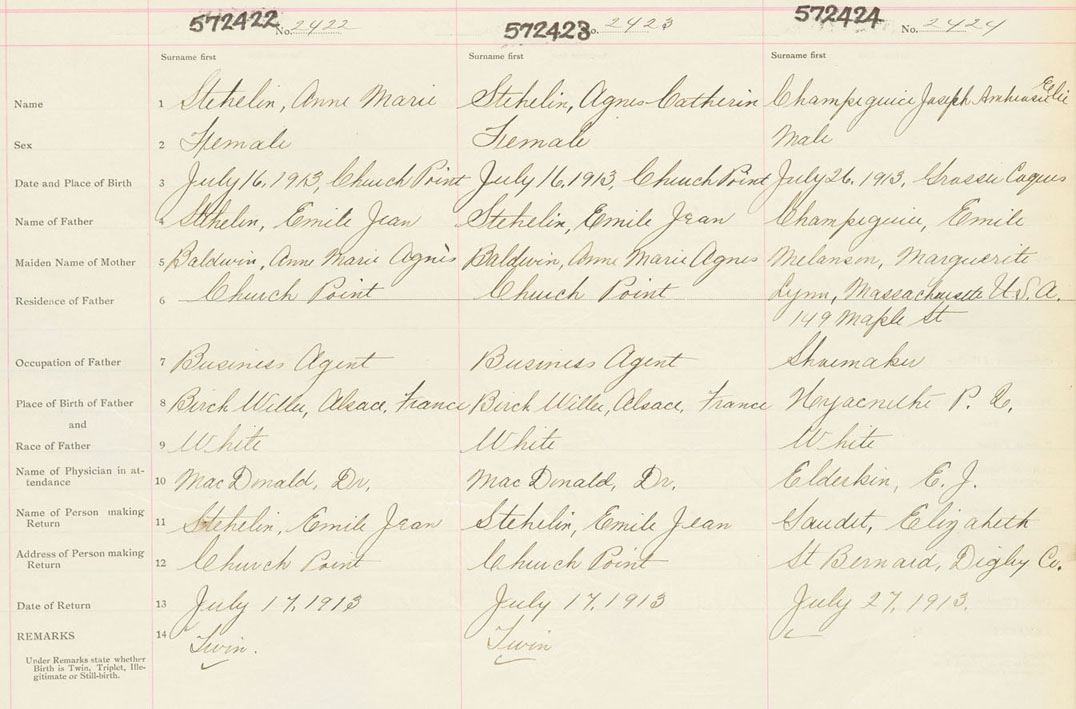 572422 No. 2422 572423 No. 2423 572424 No. 2424
Surname first Surname first Surname first
Name 1 Stehelin, Anne Marie Stehelin, Agnes Catherin Joseph
Sex 2 Female Female Male
Date and Place of Birth 3 July 16, 1913, Church Point July 16, 1913, Church Point July 26, 1913, Grosses Coques
Name of Father 4 Stehelin, Emile Jean Stehelin, Emile Jean Emile
Maiden Name of Mother 5 Baldwin, Anne Marie Agnès Baldwin, Anne Marie Agnes Melanson, Marguerite
Residence of Father 6 Church Point Church Point Lynn, Massachusetts U.S.A.
149 Maple St
Occupation of Father 7 Business Agent Business Agent Shoemaker
Place of Birth of Father 8 Birch Willer, Alsace, France Birch Willer, Alsace, France P. Q.
and
Race of Father 9 White White White
Name of Physician in at-
tendance 10 MacDonald, Dr. MacDonald, Dr. Elderkin, E. J.
Name of Person making
Return 11 Stehelin, Emile Jean Stehelin, Emile Jean Gaudet, Elizabeth
Address of Person making
Return 12 Church Point Church Point St Bernard, Digby Co.
Date of Return 13 July 17, 1913 July 17, 1913 July 27, 1913.
REMARKS 14 Twin. Twin
Under Remarks state whether
Birth is Twin, Triplet, Ille-
gitimate or Still-birth.